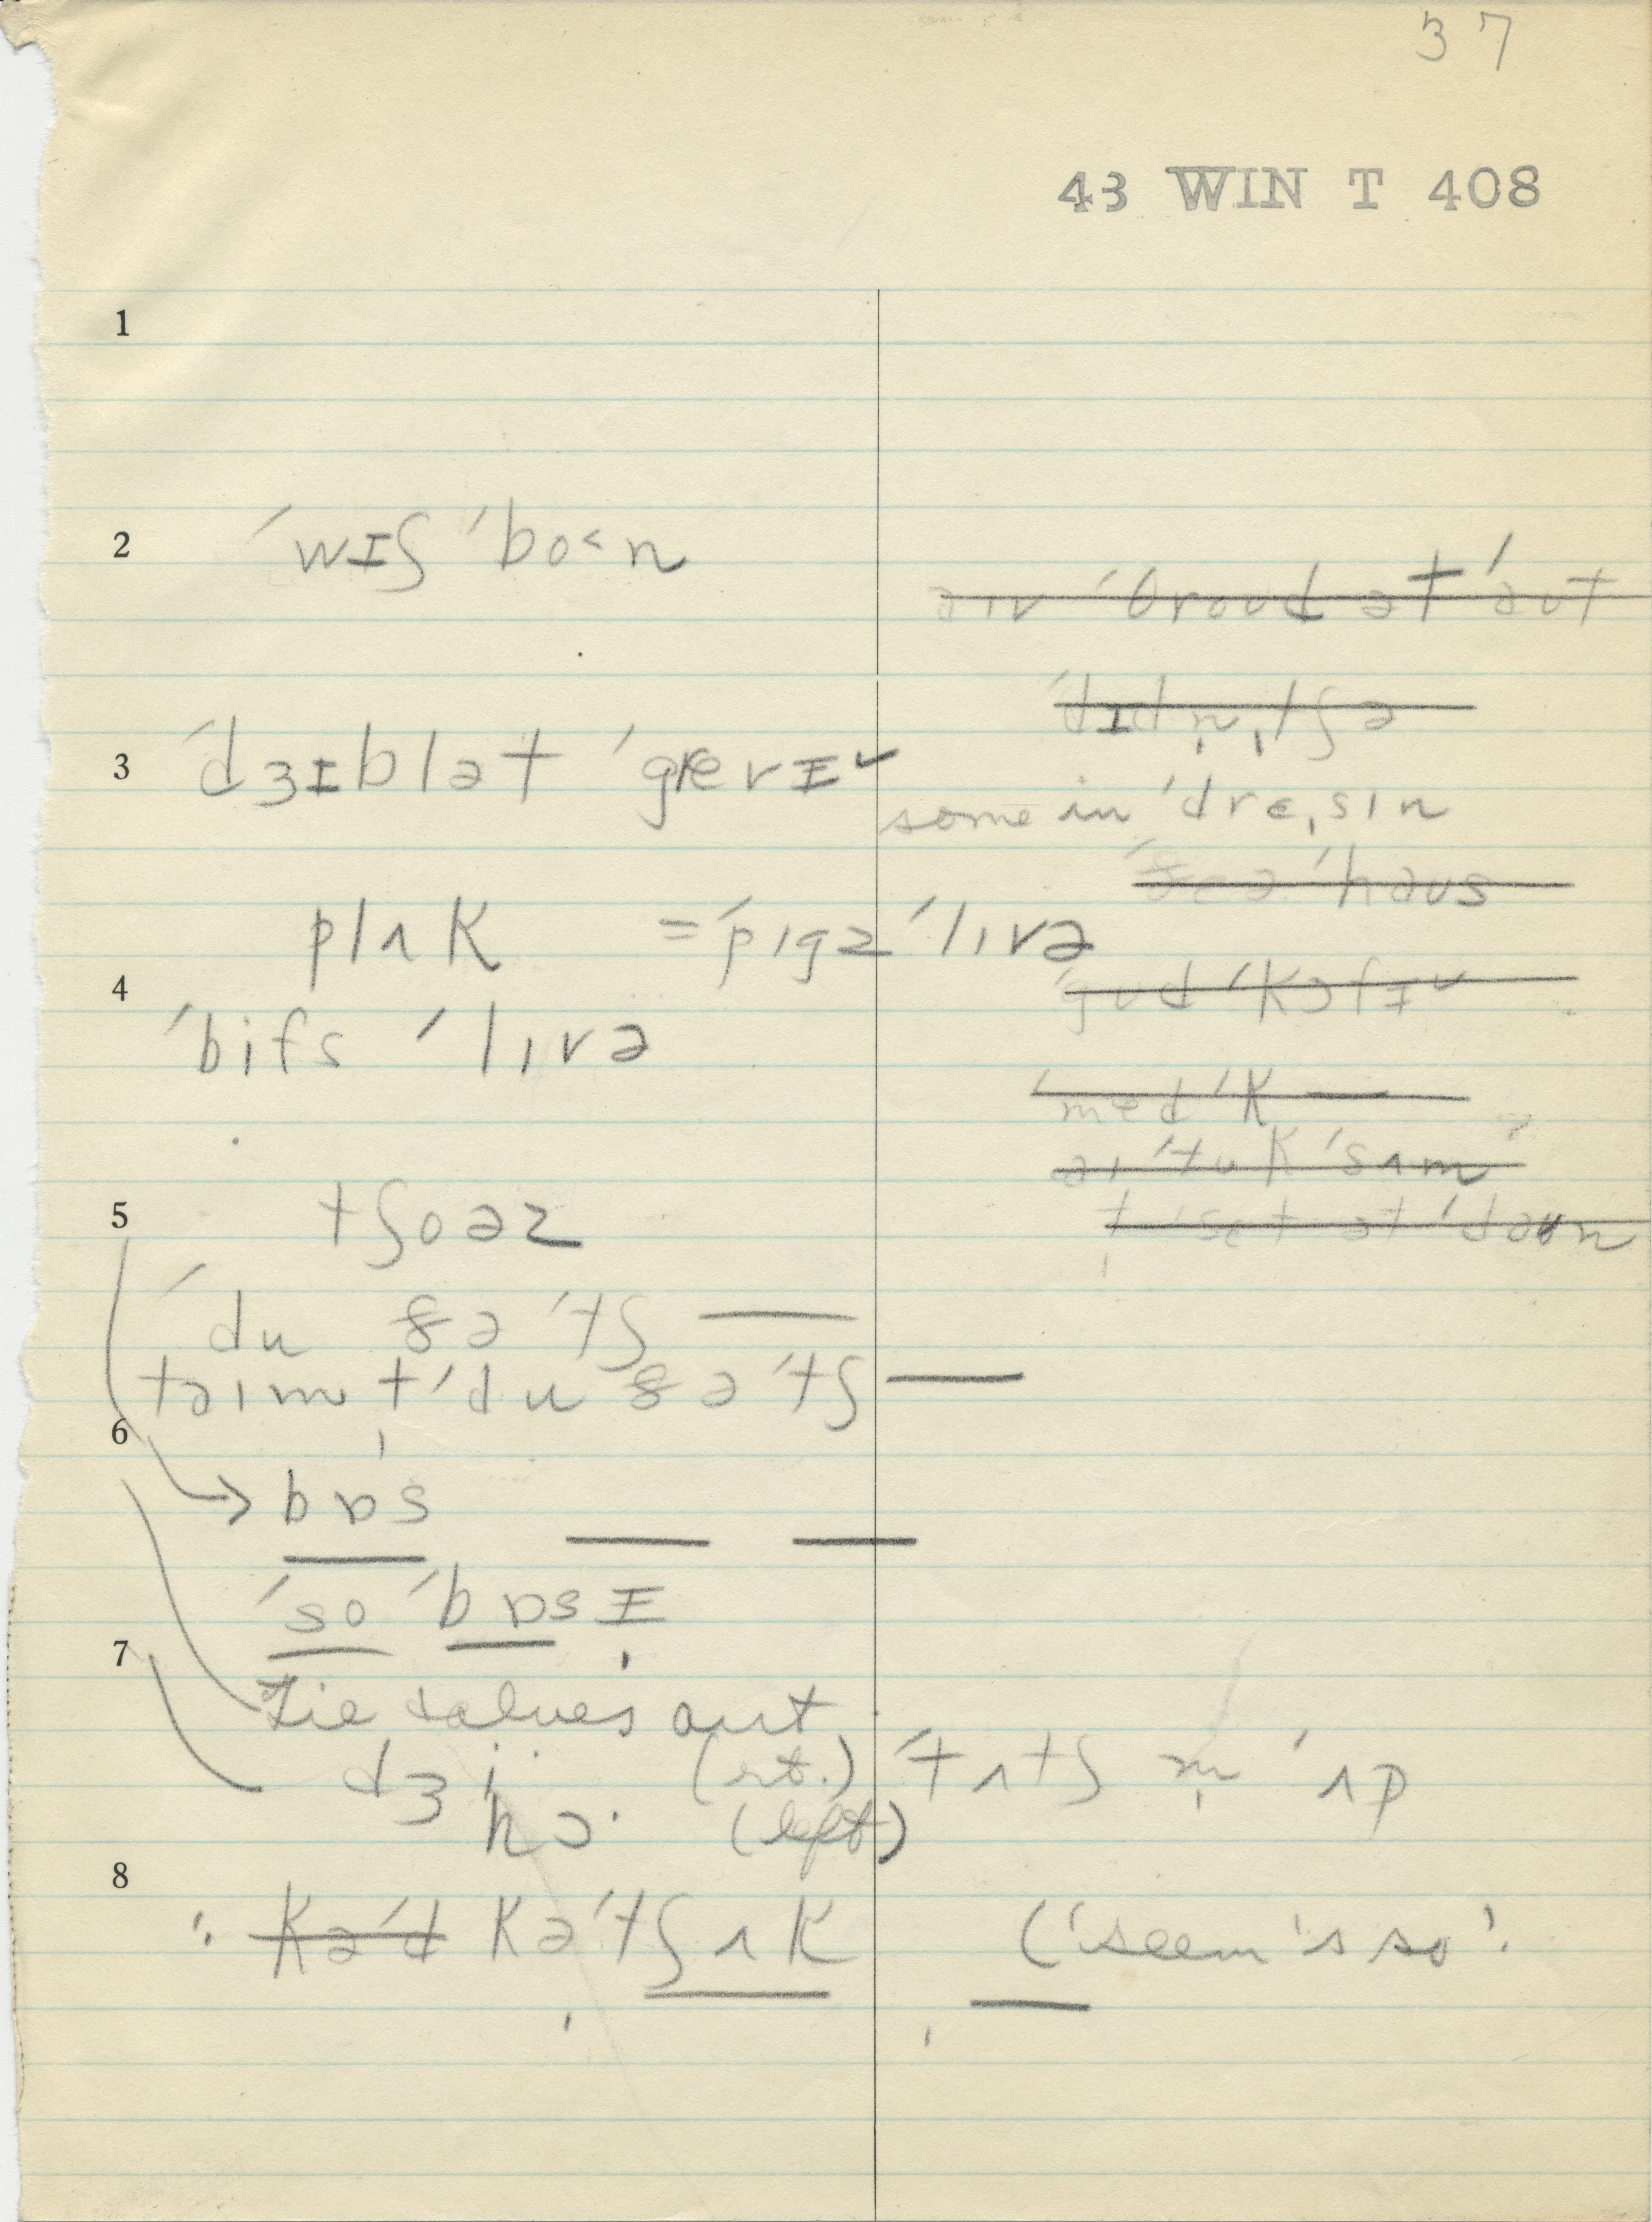 37
43 WIN T 408
1
2 ˈwɪʃ ˈbo˂n
a̶ɪ̶v̶ ˈθ̶r̶o̶u̶d̶ ə̶t̶ ˈa̶u̶t̶
ˈd̶ɪ̶d̶n̶̩ˌt̶ʃ̶ə̶
3 ˈdʒɪblət ˈgrevɪˇ
some in ˈdrɛˌsɪn
ˈh̶a̶u̶s̶
plʌk =ˈpɪgz ˈlɪvə
4
ˈg̶u̶d̶ ˈk̶ɔ̶f̶ɪ̶ˇ
ˈbifs ˈlɪvə
ˈm̶e̶d̶ ˈk̶ —
a̶ɪ̶ ˈt̶u̶k̶ ˈs̶ʌ̶m̶
5 tʃoəz
t̶̩ ˈs̶e̶t̶ ə̶t̶ ˈd̶a̶u̶n̶
ˈdu ðə ˈtʃ —
taɪm t̩ ˈdu ðə ˈtʃ —
6
→ bɒs — —
ˈso ˈbɒsɪ
7
tie calves out
dʒi (rt.) ˈtʌtʃ m̩ ˈʌp
hɔ· (left)
8
: k̶ə̶ˈd̶ kəˈtʃʌk (ˈseem ˈs so ˈ.